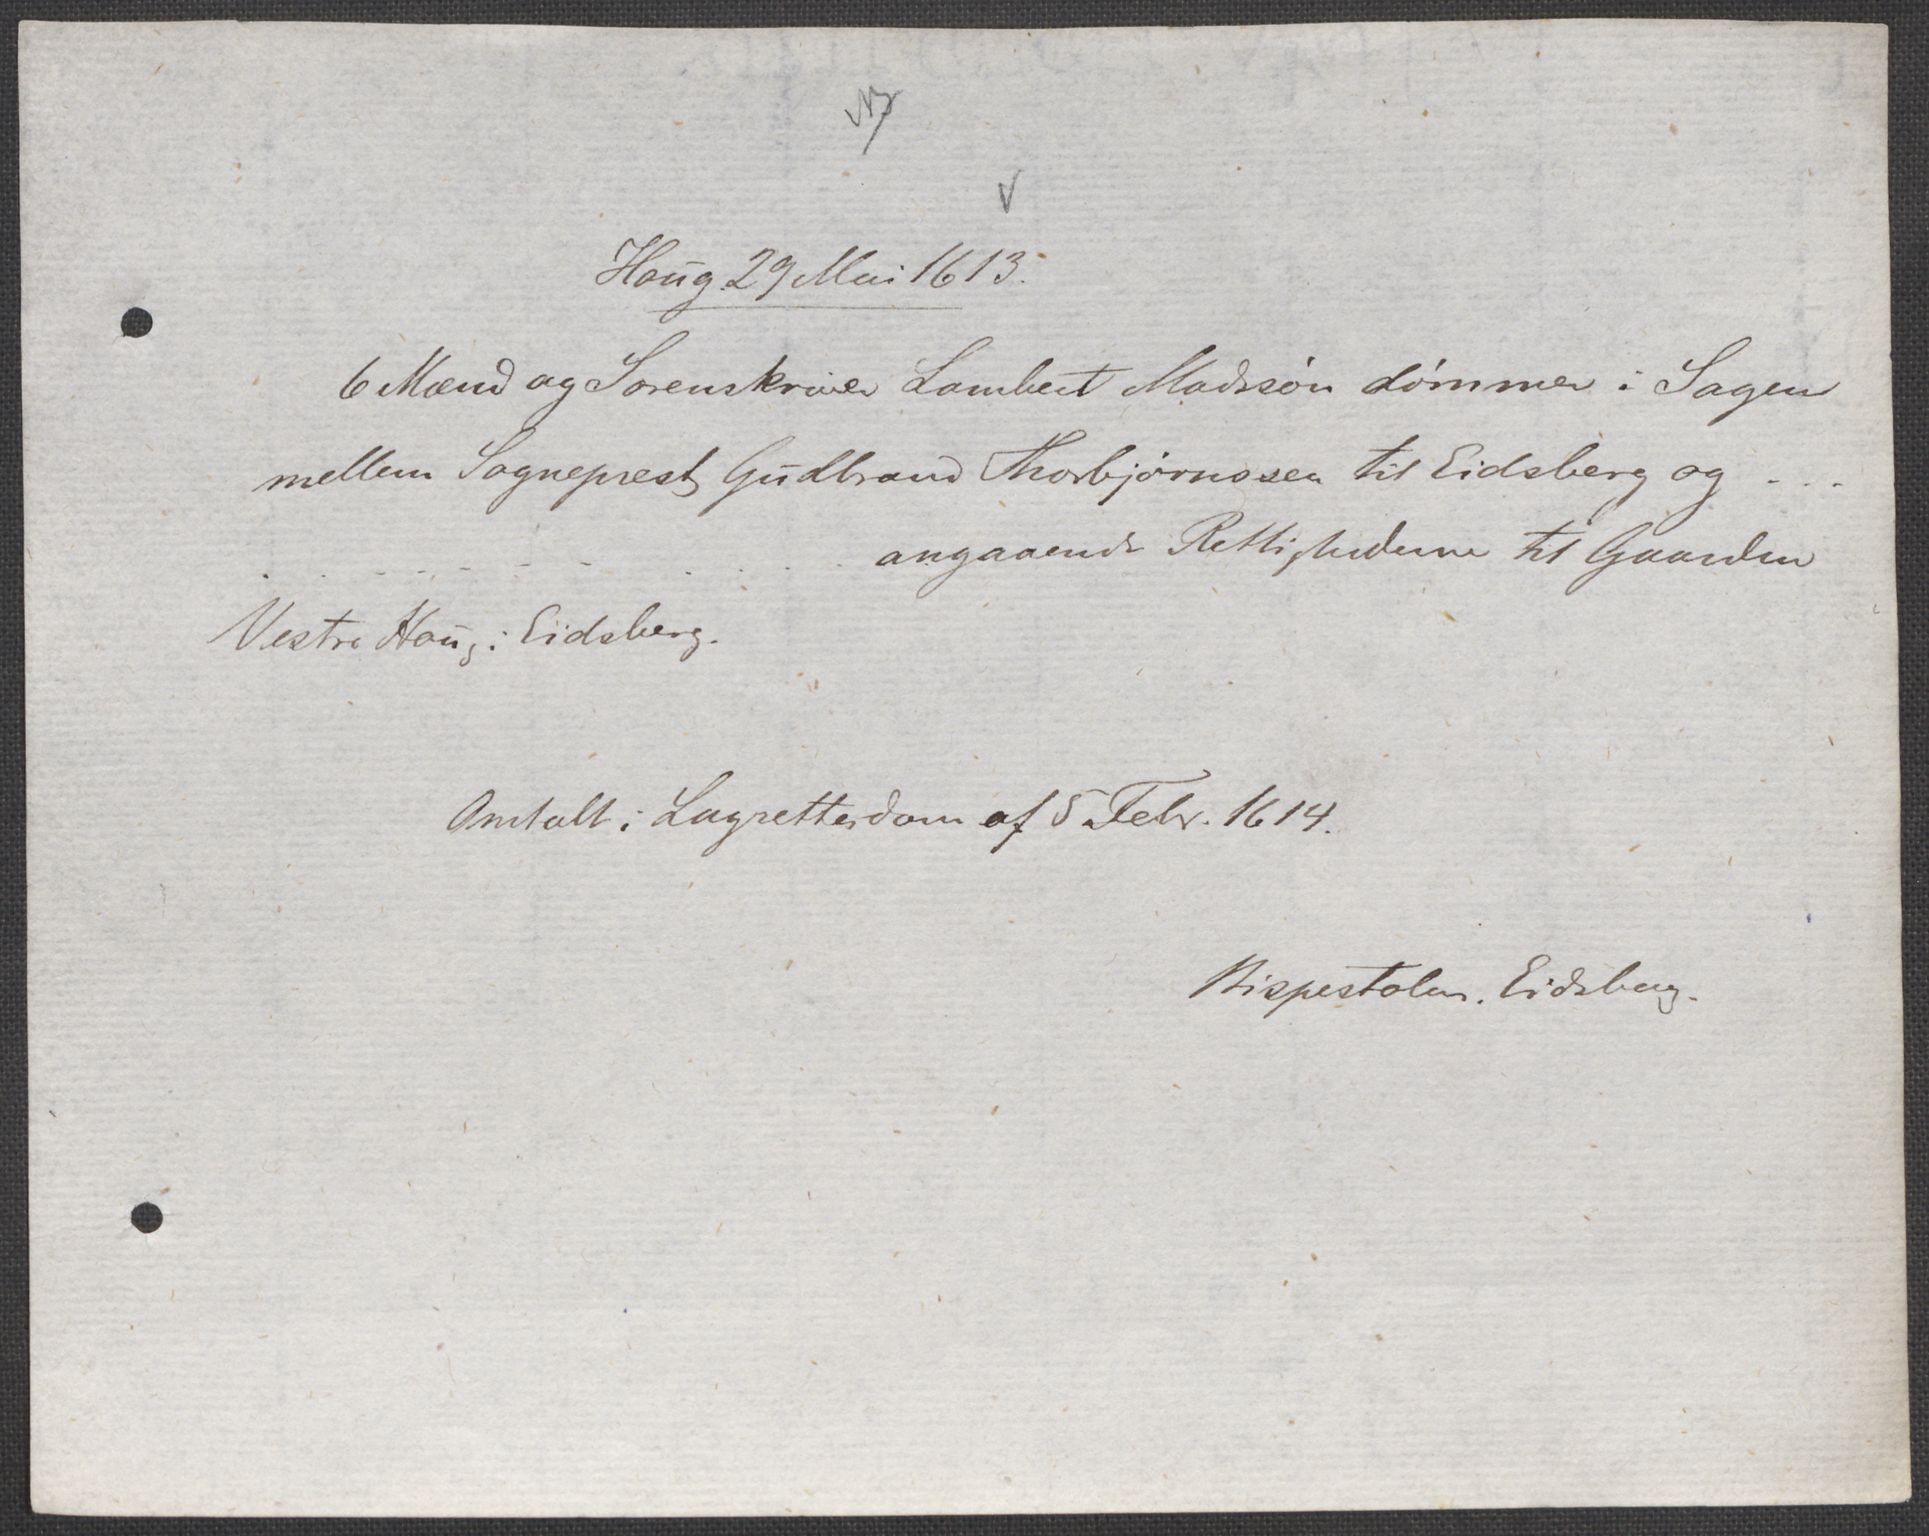 NB
Houg 29 Mai 1613.
6 Mænd og Sorenskriver Lambert Madssøn dømmer i Sagen
mellem Sogneprest Gudbrand Thorbjørnssen til Eidsberg og ...
angaaende Rettighederne til Gaarden
Vestre Houg i Eidsberg.
Omtalt i Lagrettesdom af 5 Febr. 1614.
Bispestolen. Eidsberg.